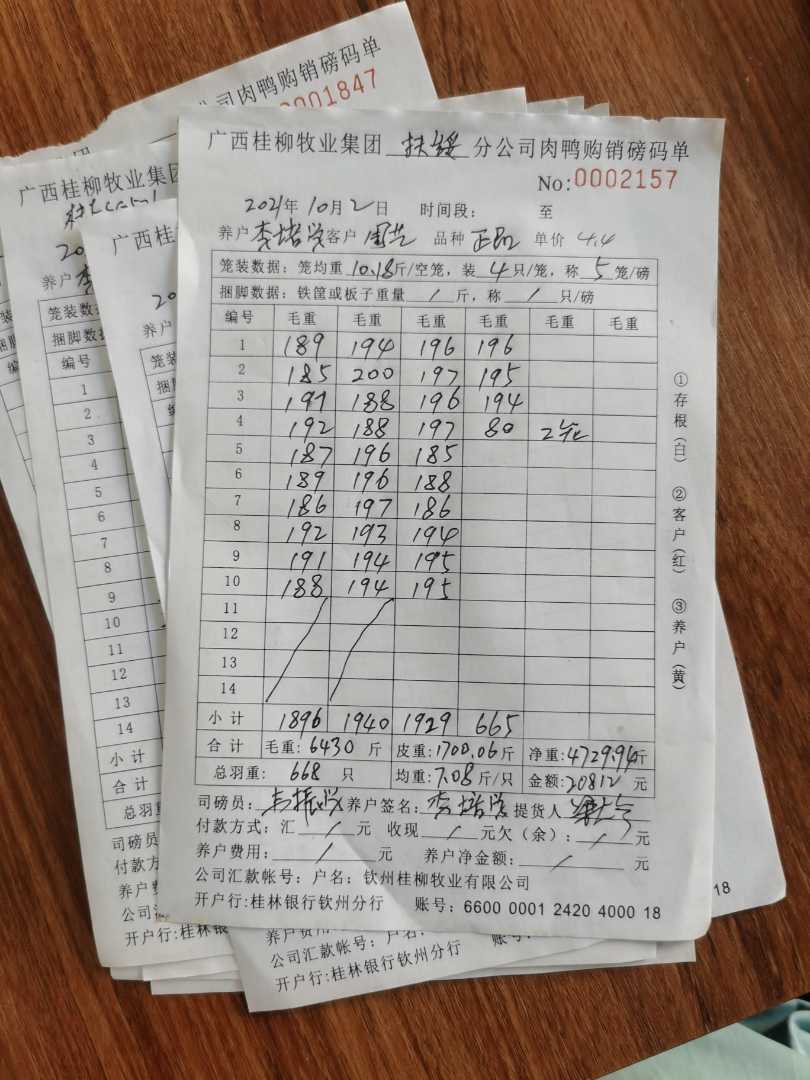 司肉鸭购销磅码单
0001847
广西桂柳牧业集团
广西桂
养户
笼装数据
捆脚数据
编号
1
2
3
4
5
6
7
8
9
10
11
12
13
14
小计
合计
总羽重
司磅员
付款方
养户费
公司汇
开户行:桂林
广西桂柳牧业集团 扶绥 分公司肉鸭购销磅码单
No:0002157
2021年10月2日 时间段: 至
养户 李培学 客户 周艺 品种 正品 单价 4.4
笼装数据: 笼均重 10.18 斤/空笼, 装 4 只/笼, 称 5 笼/磅
捆脚数据: 铁筐或板子重量 / 斤, 称 / 只/磅
编号 毛重 毛重 毛重 毛重 毛重 毛重
1 189 194 196 196
2 185 200 197 195
3 191 188 196 194
4 192 188 197 80 2笼
5 187 196 185
6 189 196 188
7 186 197 186
8 192 193 194
9 191 194 195
10 188 194 195
11
12
13
14
小计 1896 1940 1929 665
合计 毛重: 6430 斤 皮重: 1700.06 斤 净重: 4729.94 斤
总羽重: 668 只 均重: 7.08 斤/只 金额: 20812 元
司磅员: 养户签名: 李培学 提货人
付款方式: 汇 / 元 收现 / 元欠(余): / 元
养户费用: / 元 养户净金额: / 元
公司汇款帐号: 户名: 钦州桂柳牧业有限公司
开户行:桂林银行钦州分行 账号: 6600 0001 2420 4000 18
①存根(白) ②客户(红) ③养户(黄)
18
养户费用
公司汇款帐号: 户名:
开户行:桂林银行钦州分行
账号: